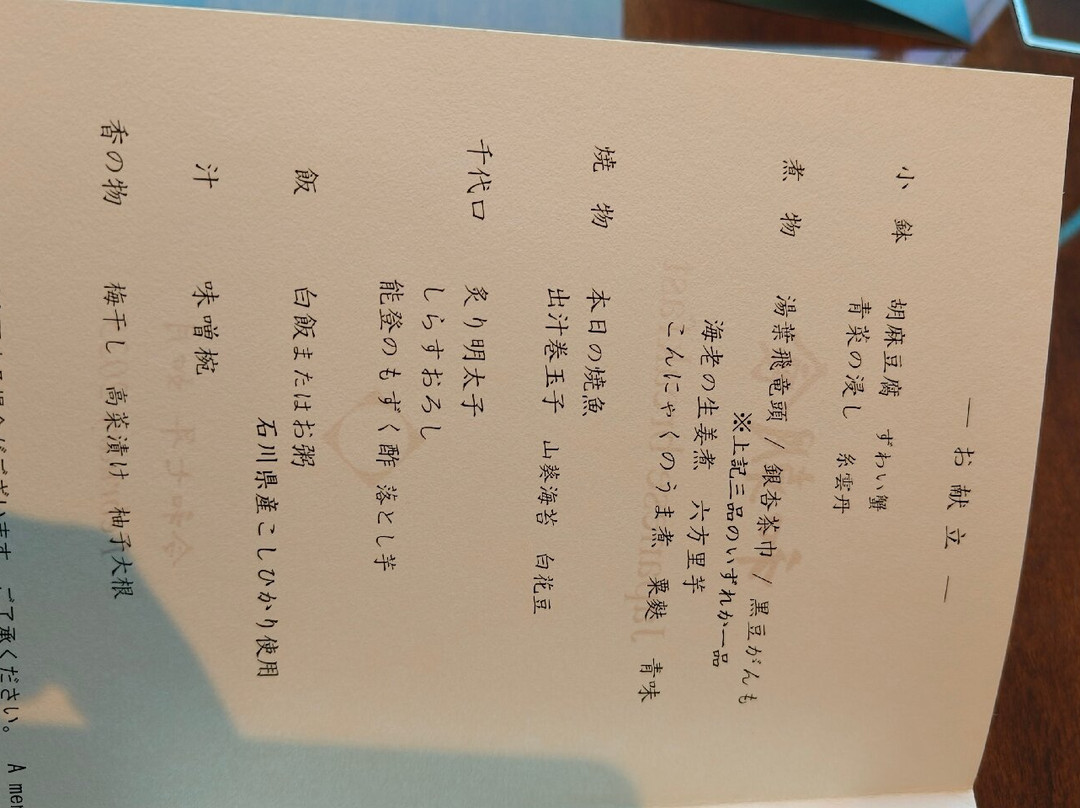 ―お献立―
小鉢 胡麻豆腐 ずわい蟹
青菜の浸し 糸雲丹
煮物 湯葉飛竜頭 / 銀杏茶巾 / 黒豆がんも
※上記三品のいずれか一品
海老の生姜煮 六方里芋
こんにゃくのうま煮 粟麩 青味
焼物 本日の焼魚
出汁巻玉子 山葵海苔 白花豆
千代口 炙り明太子
しらすおろし
能登のもずく酢 落とし芋
飯 白飯またはお粥
石川県産こしひかり使用
汁 味噌椀
香の物 梅干し 高菜漬け 柚子大根
場合がございます。ご了承ください。 A